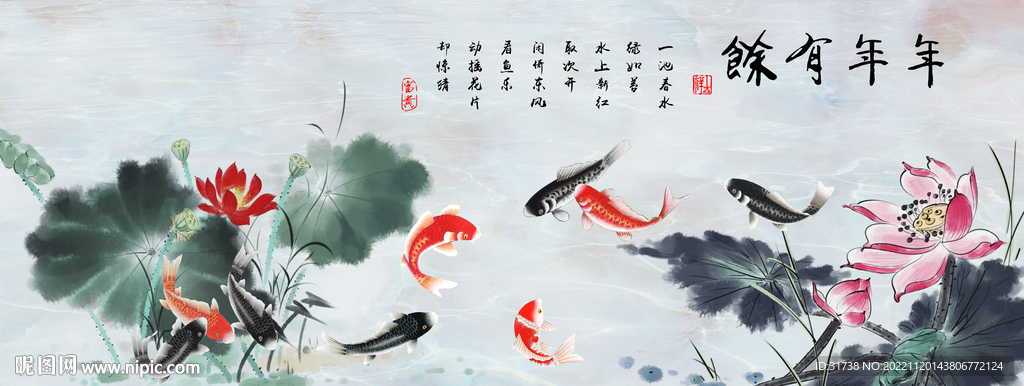 年年有餘
一池春水
绿如苔
水上新红
取次开
闲倚东风
看鱼乐
动摇花片
却惊猜
昵图网 www.nipic.com
ID:31738 NO:20221120143806772124